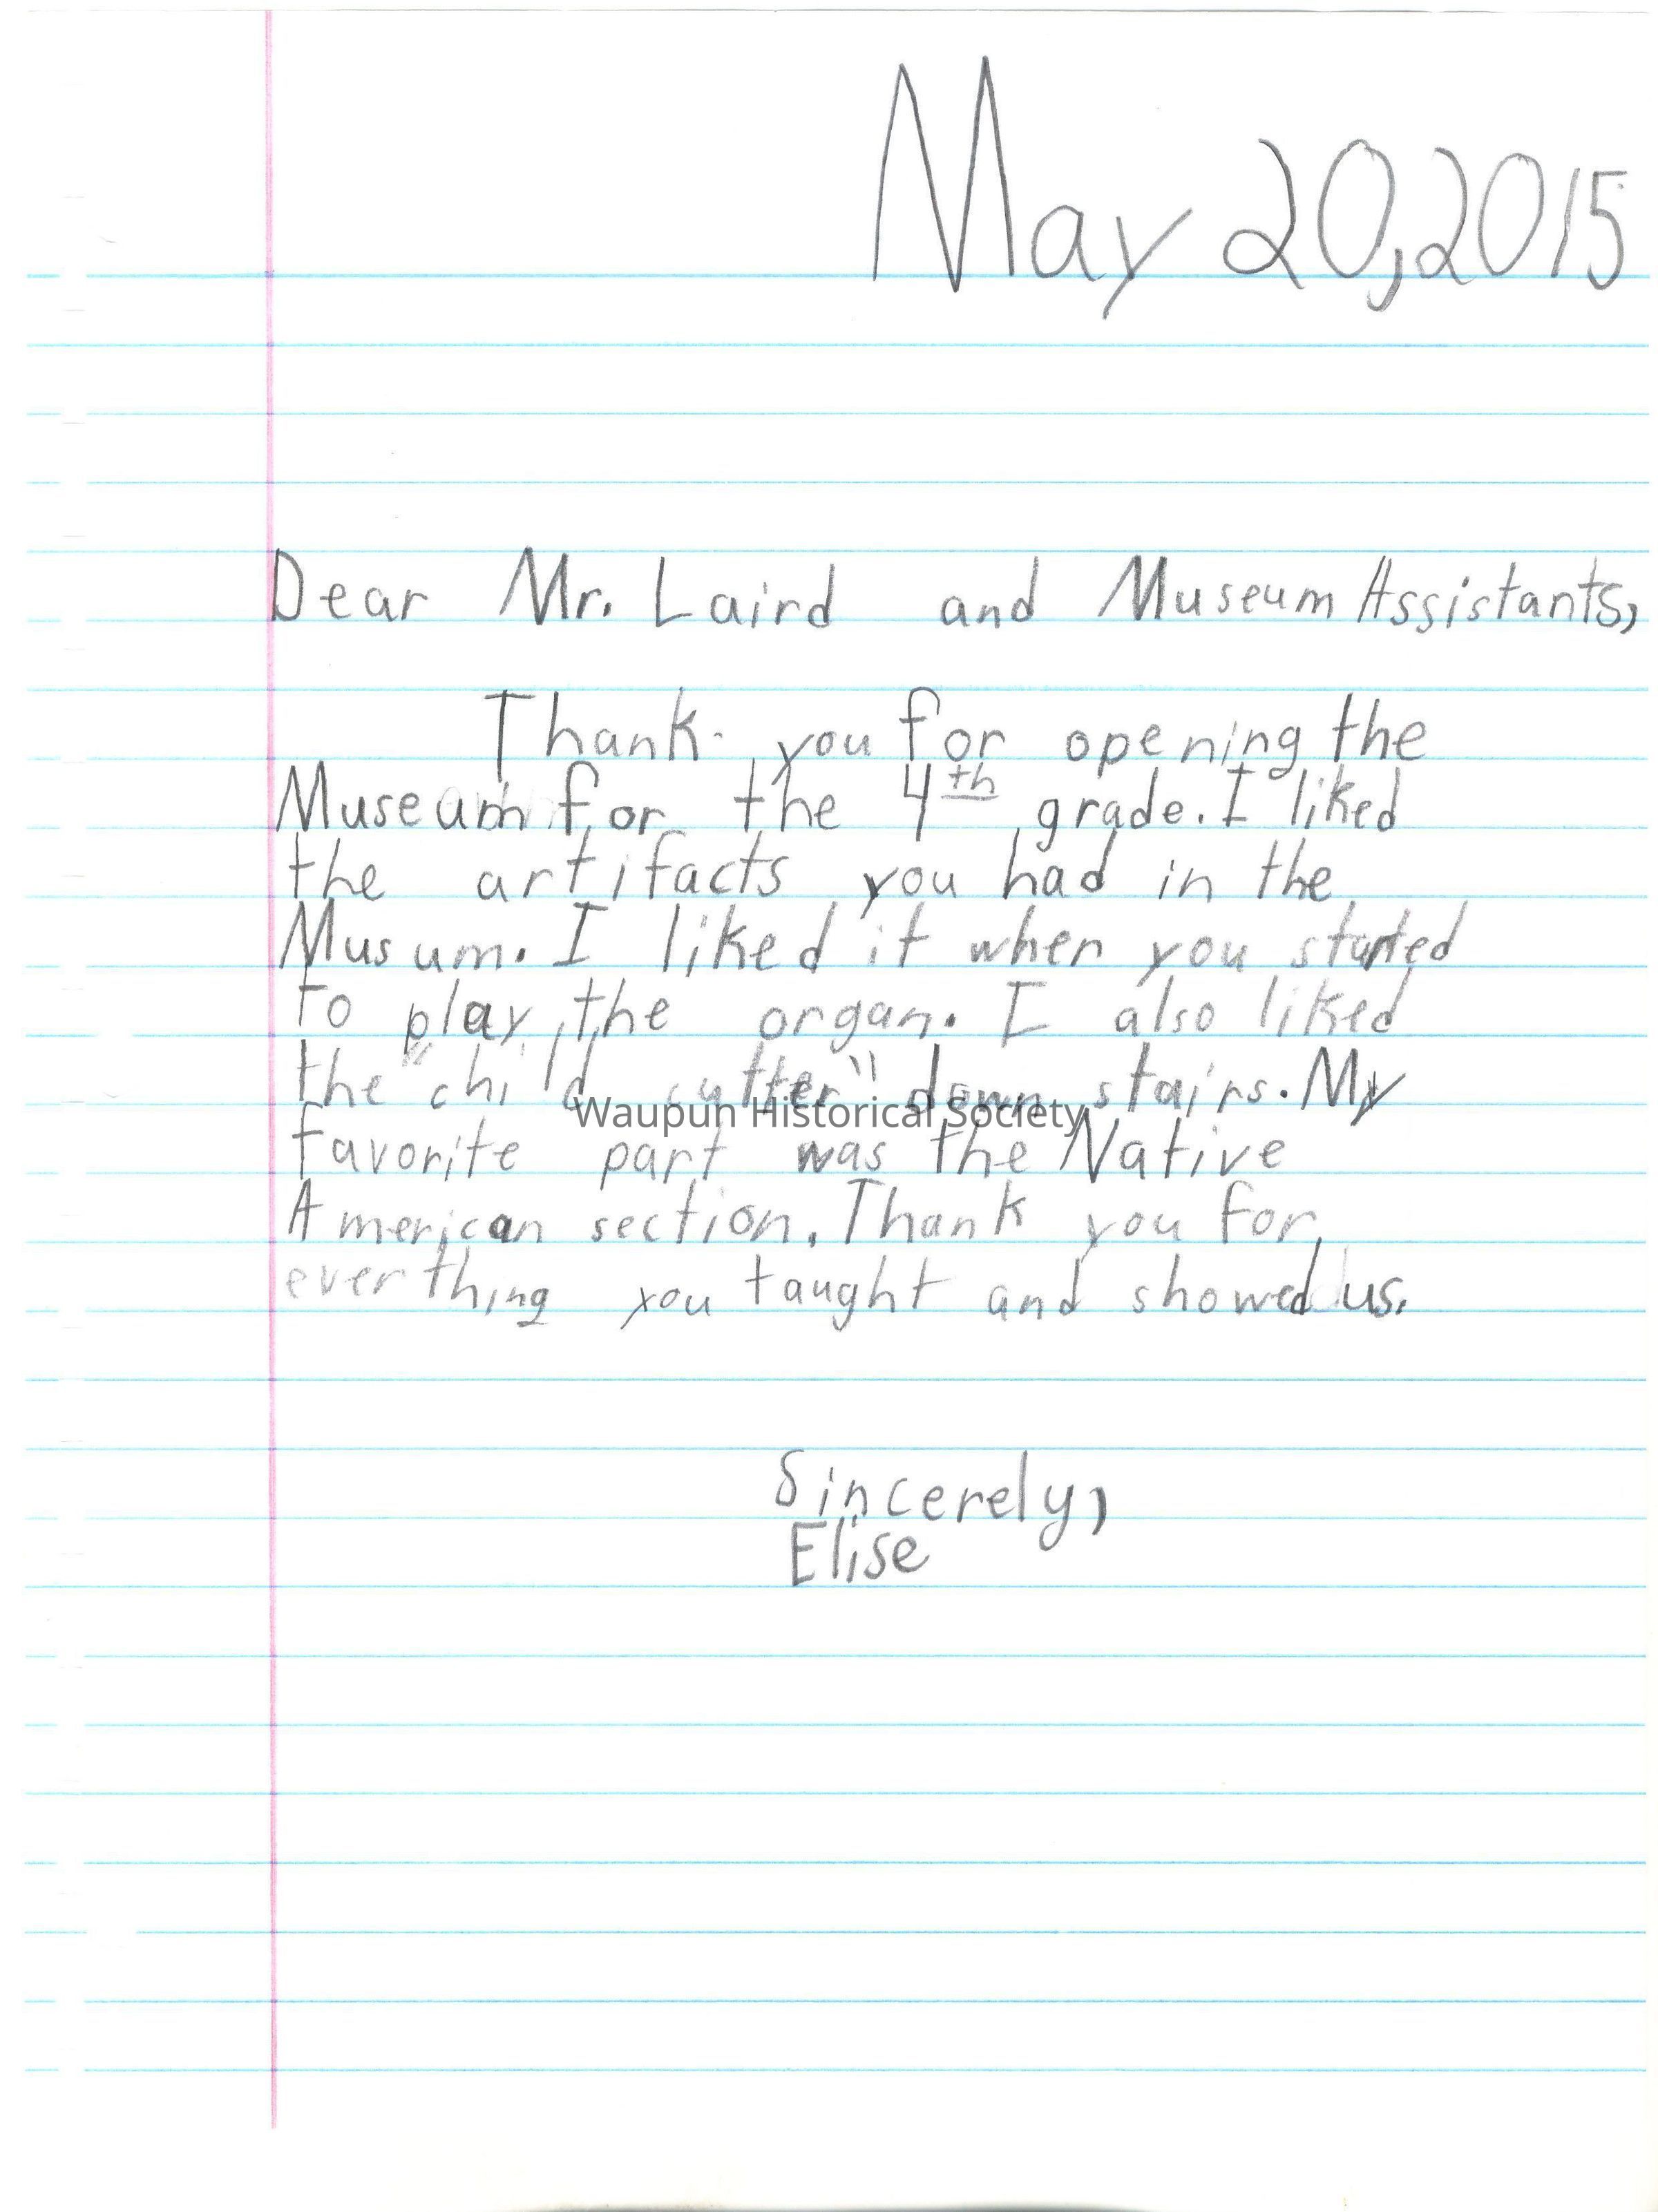 May 20, 2015
Dear Mr. Laird and Museum Assistants,
Thank you for opening the
Museum for the 4th grade. I liked
the artifacts you had in the
Musum. I liked it when you started
to play the organ. I also liked
the "child cutter" down stairs. My
Waupun Historical Society
favorite part was the Native
American section. Thank you for
everthing you taught and showed us.
Sincerely,
Elise